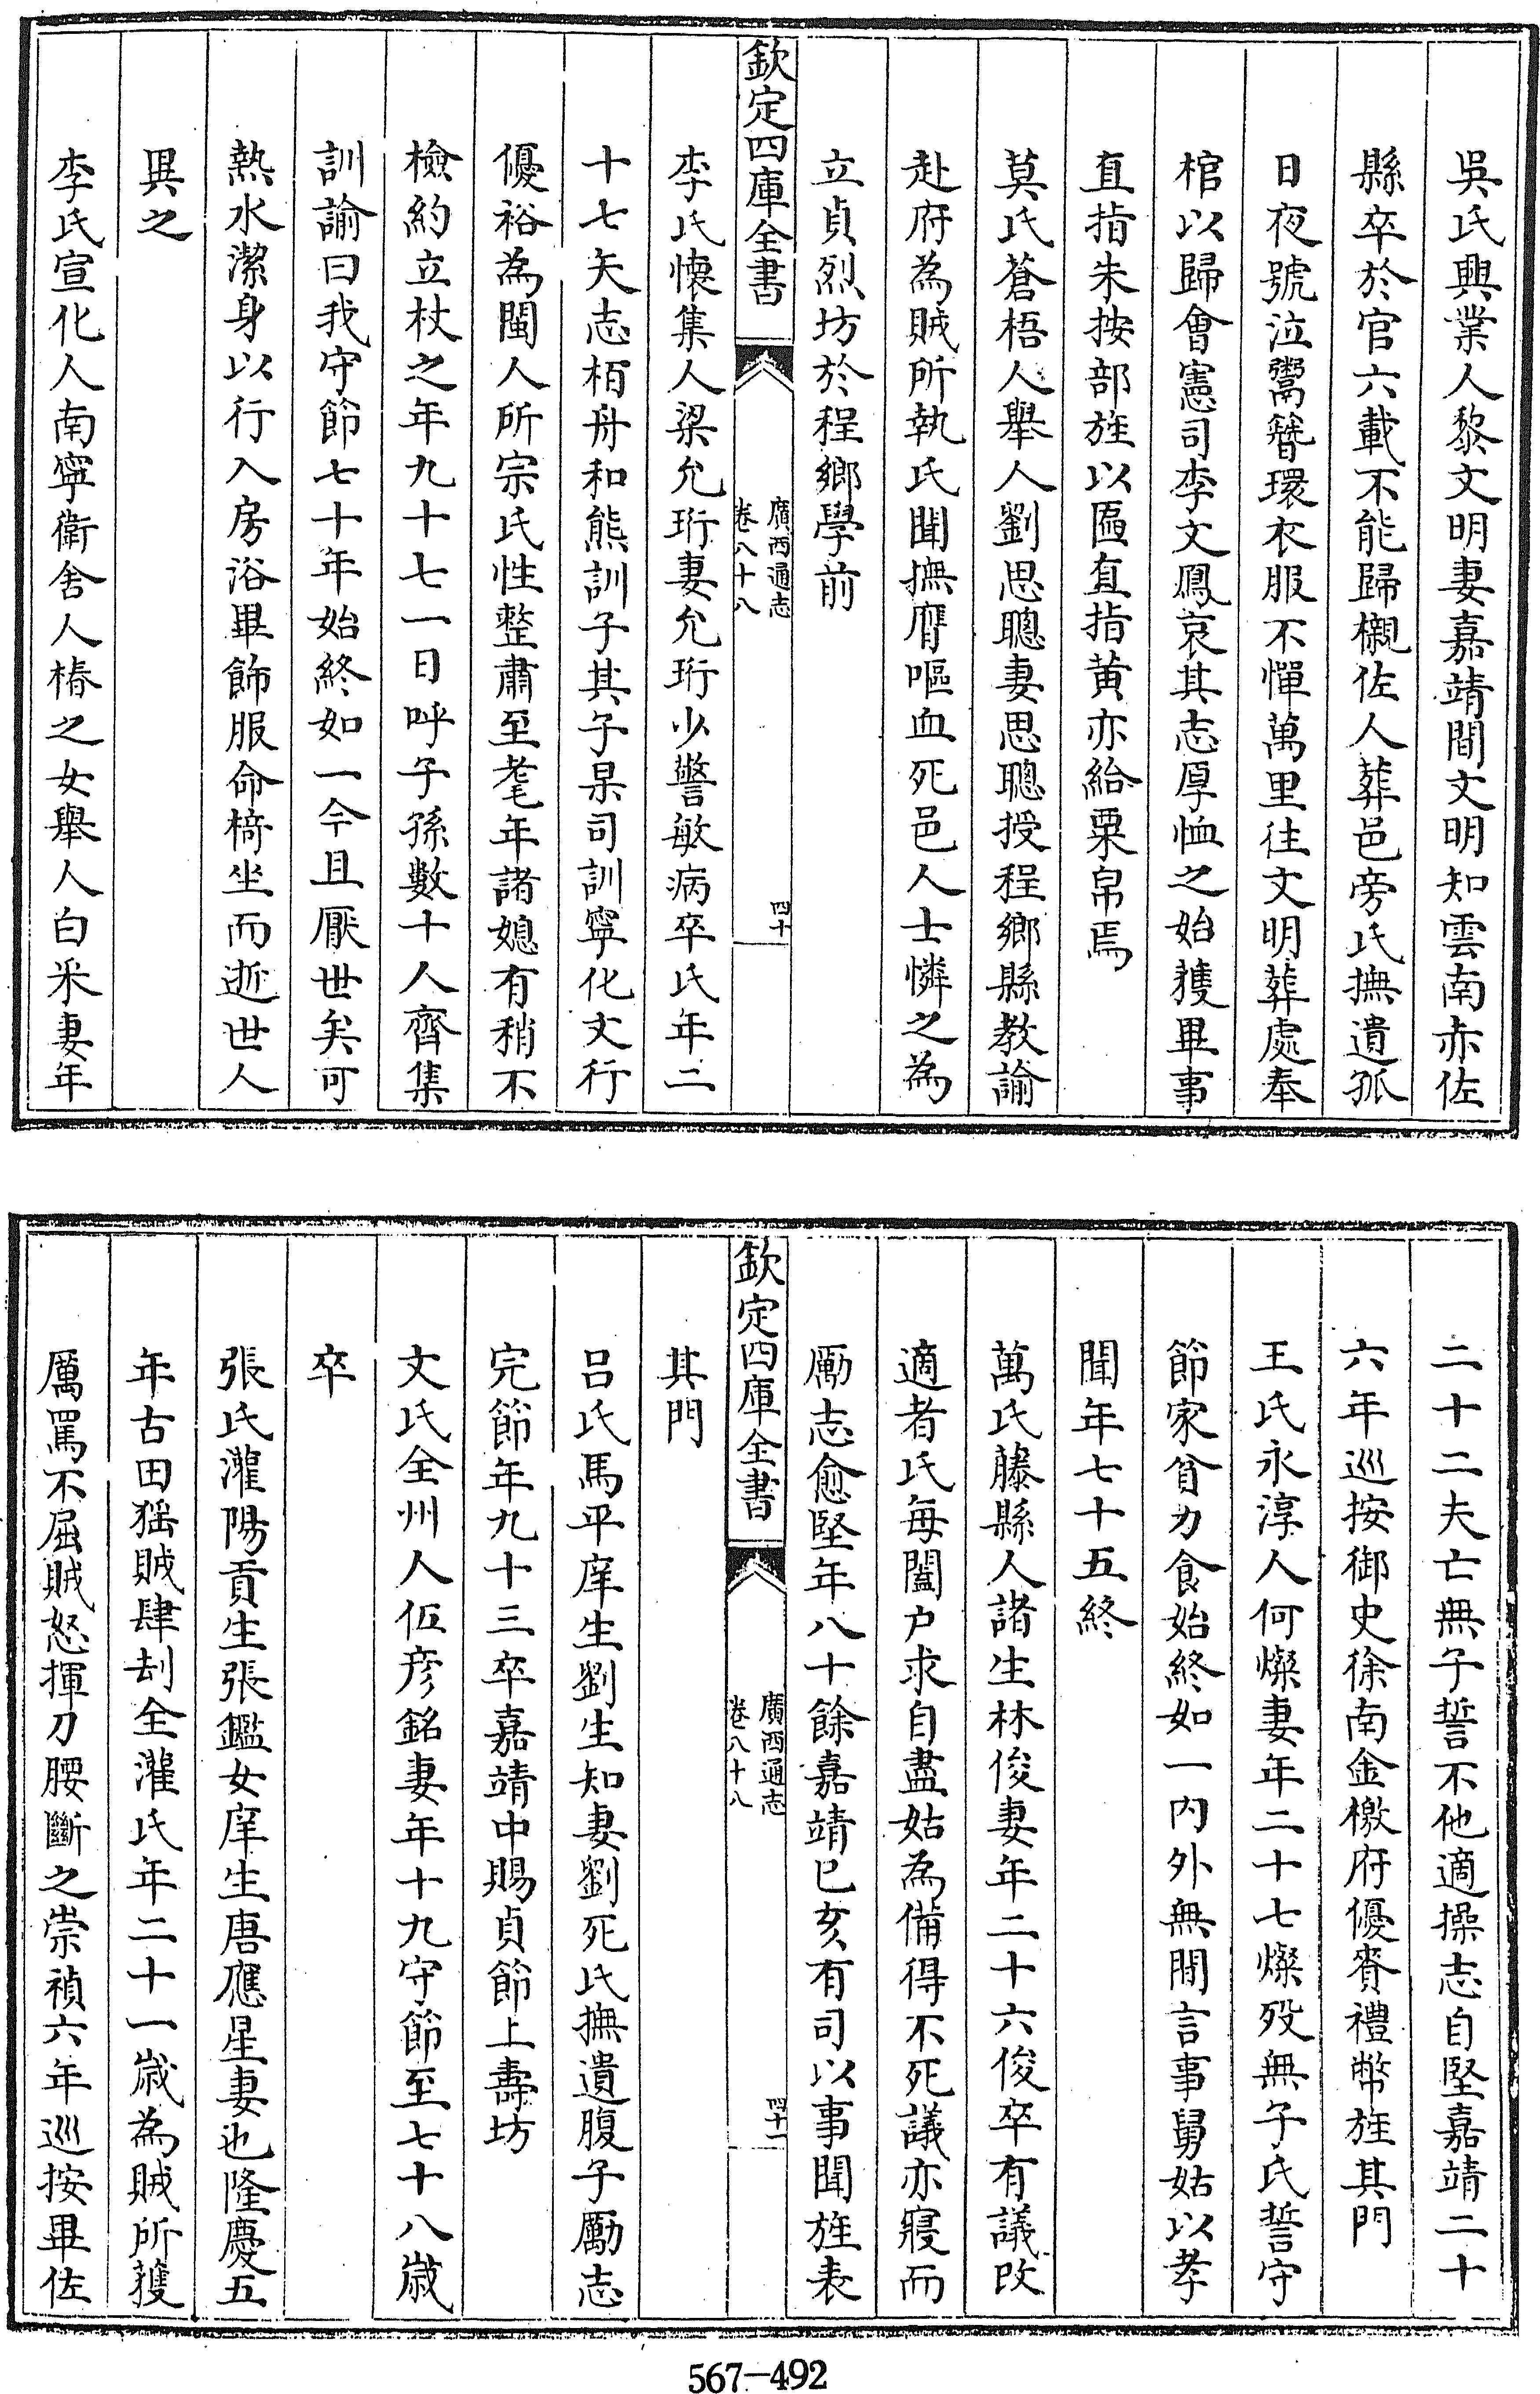 吳氏興業人黎文明妻嘉靖間文明知雲南赤佐
縣卒於官六載不能歸櫬佐人葬邑旁氏撫遺孤
日夜號泣鬻簪環衣服不憚萬里往文明葬處奉
棺以歸會憲司李文鳳哀其志厚恤之始獲畢事
直指朱按部旌以匾直指黄亦給粟帛焉
莫氏蒼梧人舉人劉思聰妻思聰授程鄉縣教諭
赴府為賊所執氏聞撫膺嘔血死邑人士憐之為
立貞烈坊於程鄉學前
欽定四庫全書
廣西通志
卷八十八
四十
李氏懷集人梁允珩妻允珩少警敏病卒氏年二
十七矢志栢舟和熊訓子其子杲司訓寧化文行
優裕為閩人所宗氏性整肅至耄年諸媳有稍不
檢約立杖之年九十七一日呼子孫數十人齊集
訓諭曰我守節七十年始終如一今且厭世矣可
熱水潔身以行入房浴畢飾服命椅坐而逝世人
異之
李氏宣化人南寧衛舍人椿之女舉人白采妻年
二十二夫亡無子誓不他適操志自堅嘉靖二十
六年巡按御史徐南金檄府優賚禮幣旌其門
王氏永淳人何燦妻年二十七燦殁無子氏誓守
節家貧力食始終如一内外無間言事舅姑以孝
聞年七十五終
萬氏藤縣人諸生林俊妻年二十六俊卒有議改
適者氏每闔户求自盡姑為備得不死議亦寢而
勵志愈堅年八十餘嘉靖己亥有司以事聞旌表
欽定四庫全書
廣西通志
卷八十八
四十一
其門
吕氏馬平庠生劉生知妻劉死氏撫遺腹子勵志
完節年九十三卒嘉靖中賜貞節上壽坊
文氏全州人伍彦銘妻年十九守節至七十八歲
卒
張氏灌陽貢生張鑑女庠生唐應星妻也隆慶五
年古田猺賊肆刦全灌氏年二十一歲為賊所獲
厲罵不屈賊怒揮刀腰斷之崇禎六年巡按畢佐
567-492